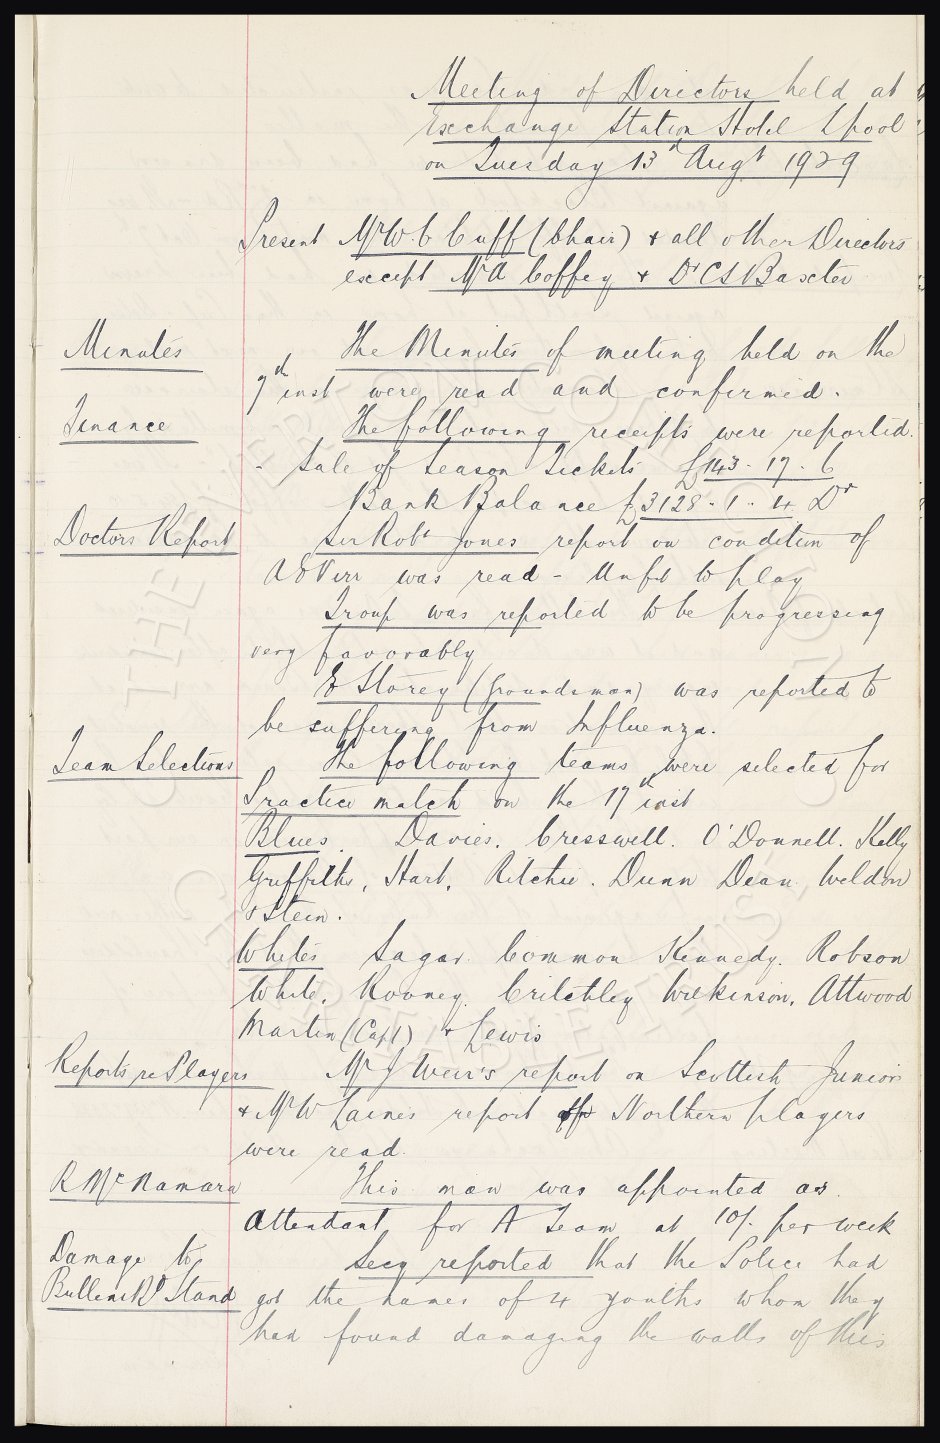 Meeting of Directors held at
Exchange Station Hotel Lpool
on Tuesday 13th Augt 1929
Present Mr W. C Cuff (Chair) & all other Directors
except Mr A Coffey & Dr C S Baxter
Minutes The Minutes of meeting held on the
7th inst were read and confirmed.
Finance The following receipts were reported.
- Sale of Season Tickets £143 - 17 - 6
Bank Balance £3128 - 1 - 4 Dr
Doctors Report Sir Robt Jones report on condition of
A E Virr was read - Unfit to play
Troup was reported to be progressing
very favorably
E Storey (Groundsman) was reported to
be suffering from Influenza.
Team Selections The following teams were selected for
Practice match on the 17th inst
Blues. Davies. Cresswell. O'Donnell. Kelly
Griffiths, Hart, Ritchie. Dunn Dean Weldon
& Stein.
Whites Sagar. Common Kennedy. Robson
White. Rooney. Critchley Wilkinson, Attwood
Martin (Capt) & Lewis
Reports re Players Mr J Weir's report on Scottish Juniors
& Mr W report Northern players
were read.
R McNamara This man was appointed as
Attendant for A Team at 10/- per week
Damage to Secy reported that the Police had
Bullens Rd Stand got the names of 4 youths whom they
had found damaging the walls of this